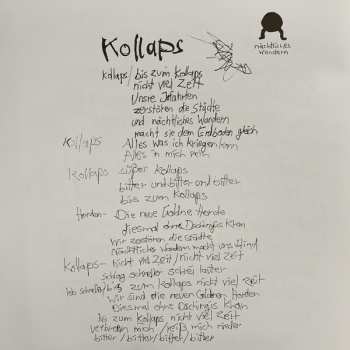 Kollaps
nächtliches
Wandern
Kollaps / bis zum Kollaps
nicht viel Zeit
Unsre Irrfahrten
zerstören die Städte
und nächtliches Wandern
macht sie dem Erdboden gleich
Kollaps Alles was ich kriegen kann
Alles in mich rein
Kollaps süßer Kollaps
bitter und bitter und bitter
bis zum Kollaps
Horden- Die neue Goldne Horde
diesmal ohne Dschingis Khan
Wir zerstören die Städte
Nächtliches Wandern macht uns blind
Kollaps- Nicht viel Zeit / nicht viel Zeit
schlag schneller
bis zum Kollaps nicht viel Zeit
wir sind die neuen Goldnen Horden
Diesmal ohne Dschingis Khan
bis zum Kollaps nicht viel Zeit
mich / reiß mich nieder
bitter / bitter / bitter / bitter